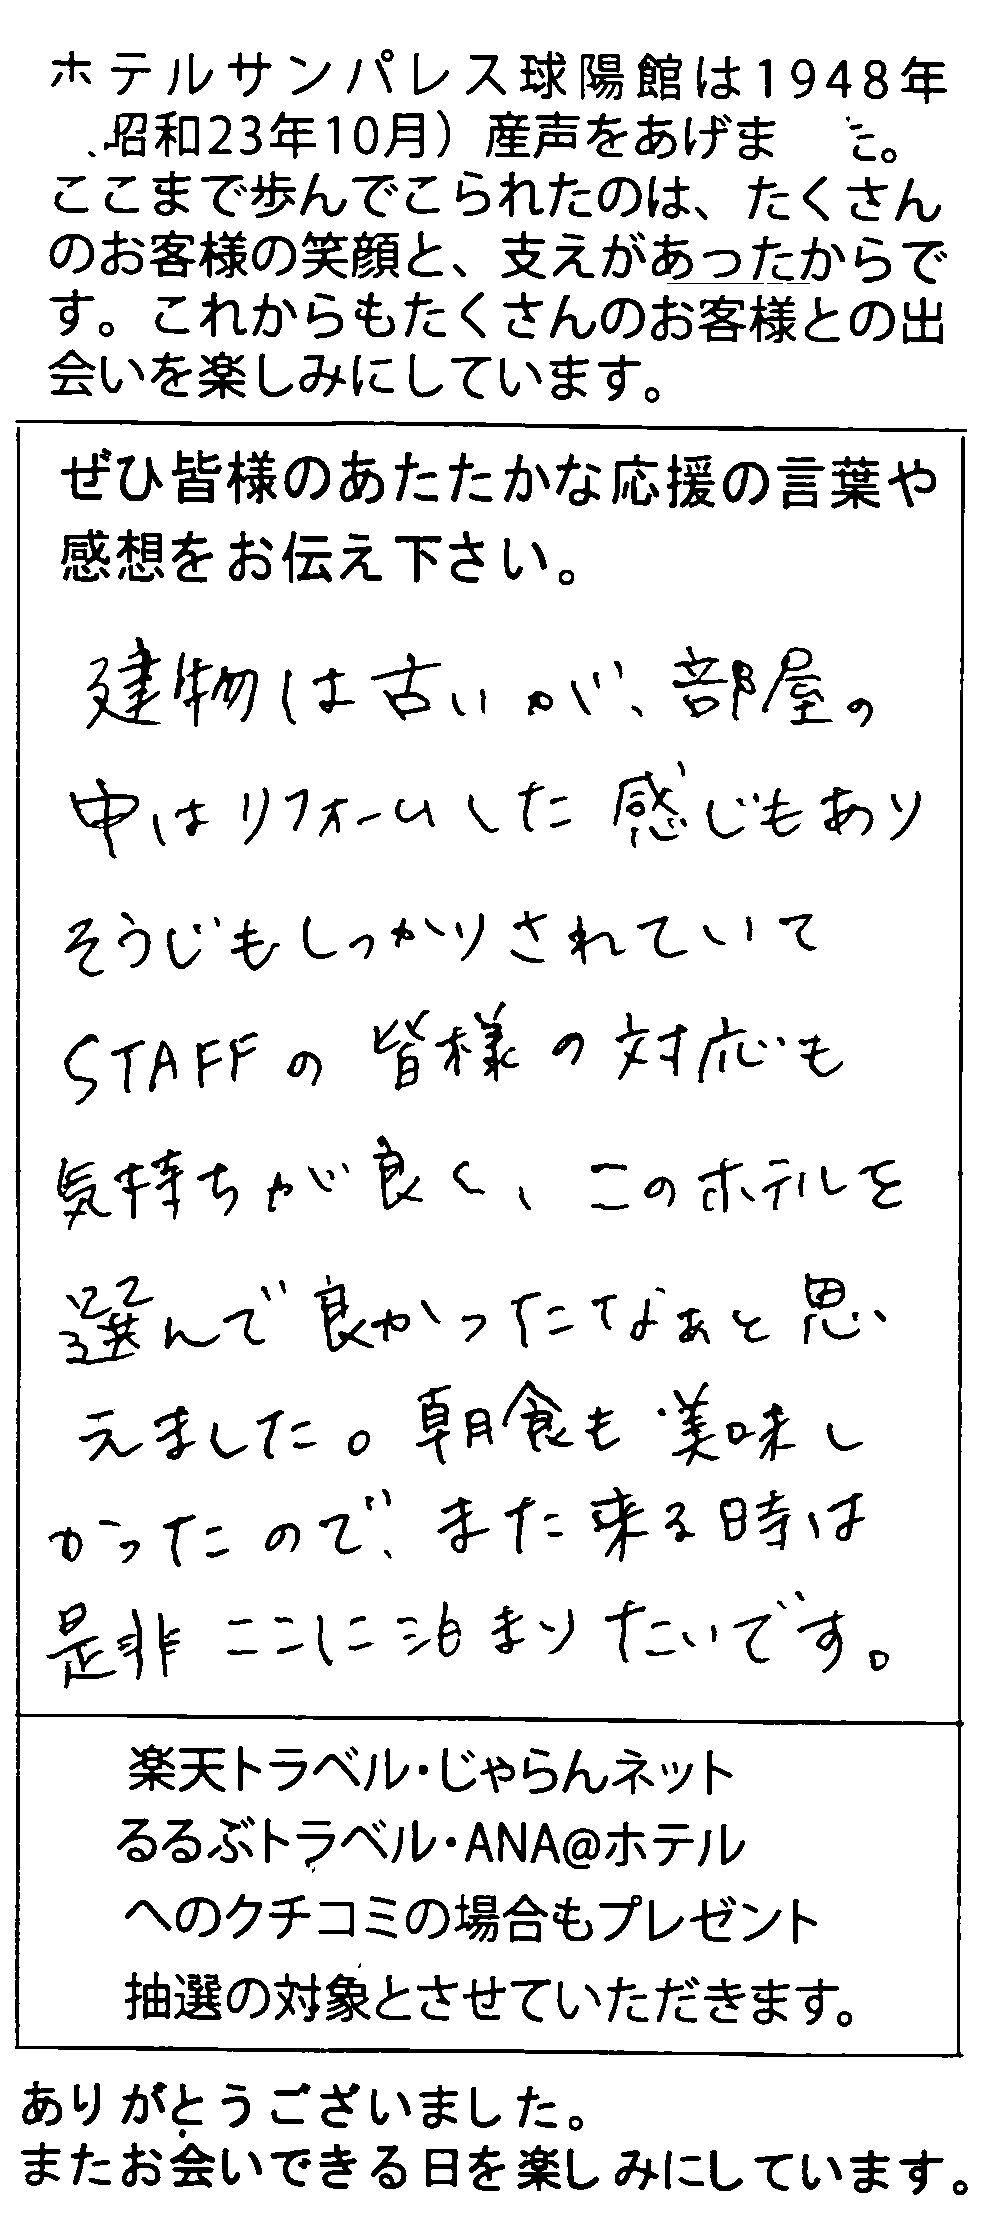 ホテルサンパレス球陽館は1948年
昭和23年10月）産声をあげま　た。
ここまで歩んでこられたのは、たくさん
のお客様の笑顔と、支えがあったからで
す。これからもたくさんのお客様との出
会いを楽しみにしています。
ぜひ皆様のあたたかな応援の言葉や
感想をお伝え下さい。
建物は古いが、部屋の
中はリフォームした感じもあり
そうじもしっかりされていて
STAFFの皆様の対応も
気持ちが良く、このホテルを
選んで良かったなぁと思い
えました。朝食も美味し
かったので、また来る時は
是非ここに泊まりたいです。
楽天トラベル・じゃらんネット
るるぶトラベル・ANA@ホテル
へのクチコミの場合もプレゼント
抽選の対象とさせていただきます。
ありがとうございました。
またお会いできる日を楽しみにしています。